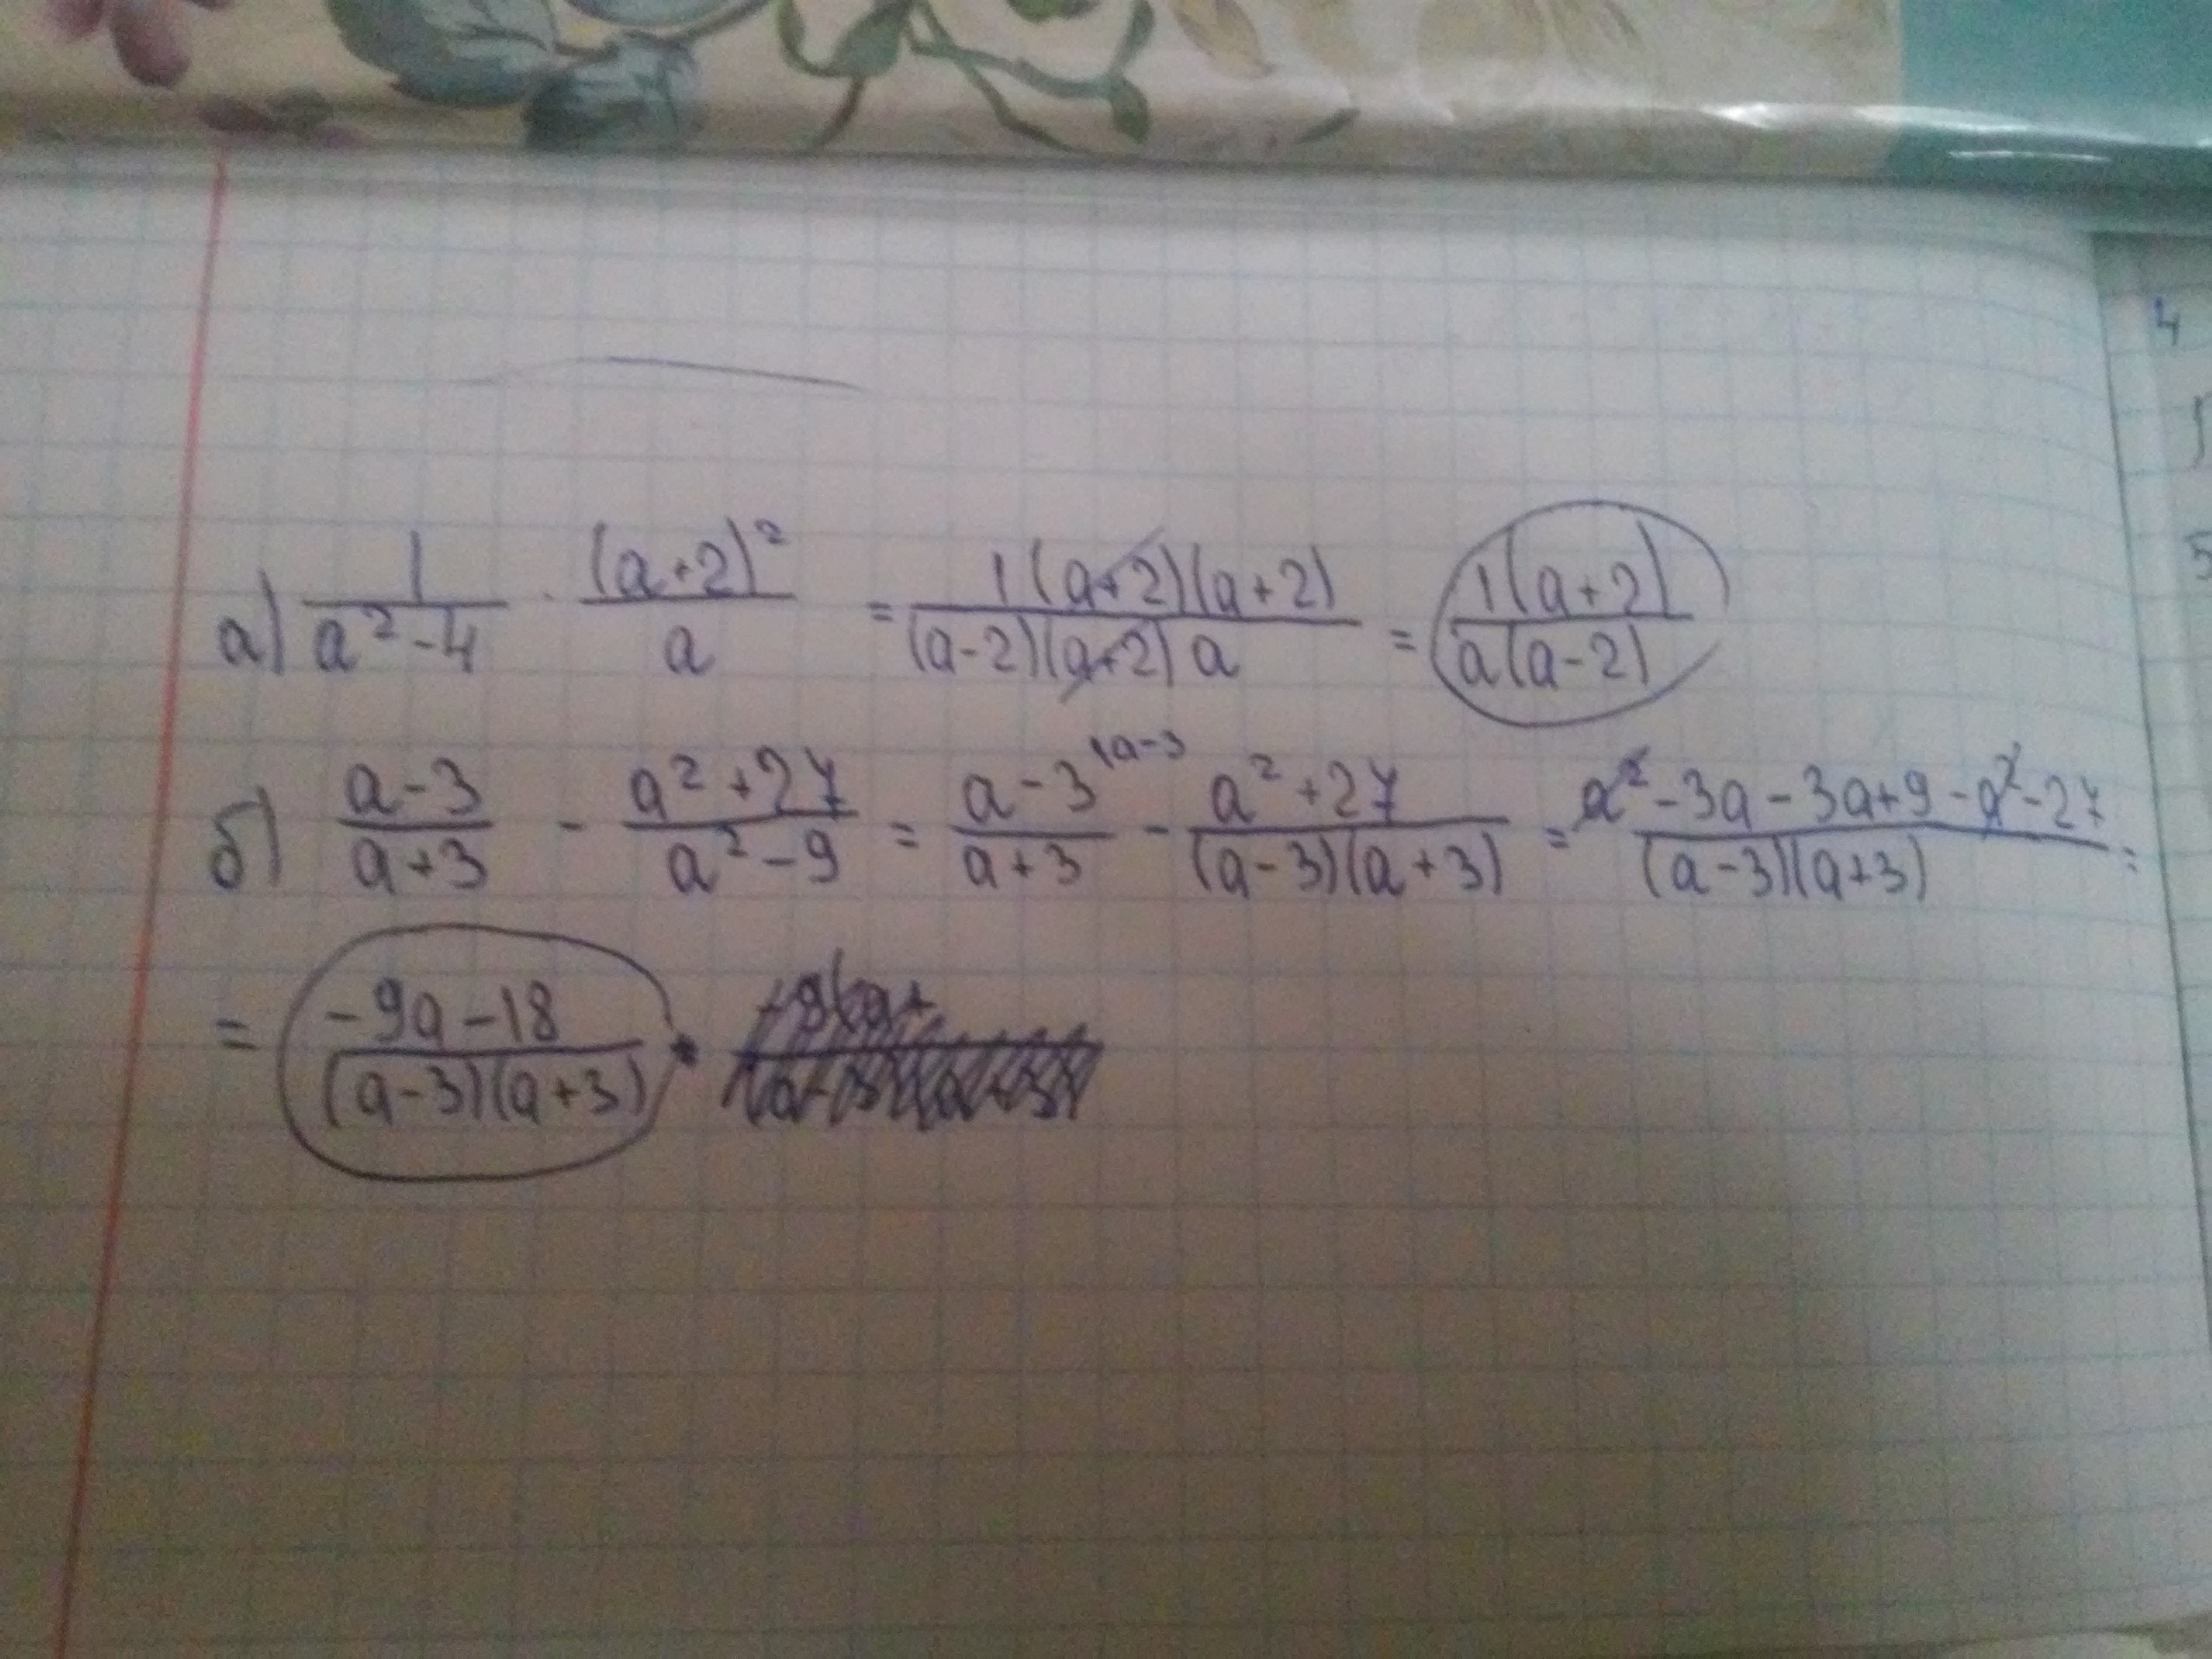 а) 1/(a² - 4) · (a+2)²/a = 1(a+2)(a+2)/((a-2)(a+2)a) = 1(a+2)/(a(a-2))
б) (a-3)/(a+3) - (a²+27)/(a²-9) = (a-3)/(a+3) (a-3 - (a²+27)/((a-3)(a+3)) = (a²-3a-3a+9-a²-27)/((a-3)(a+3)) =
= (-9a-18)/((a-3)(a+3))
4
5